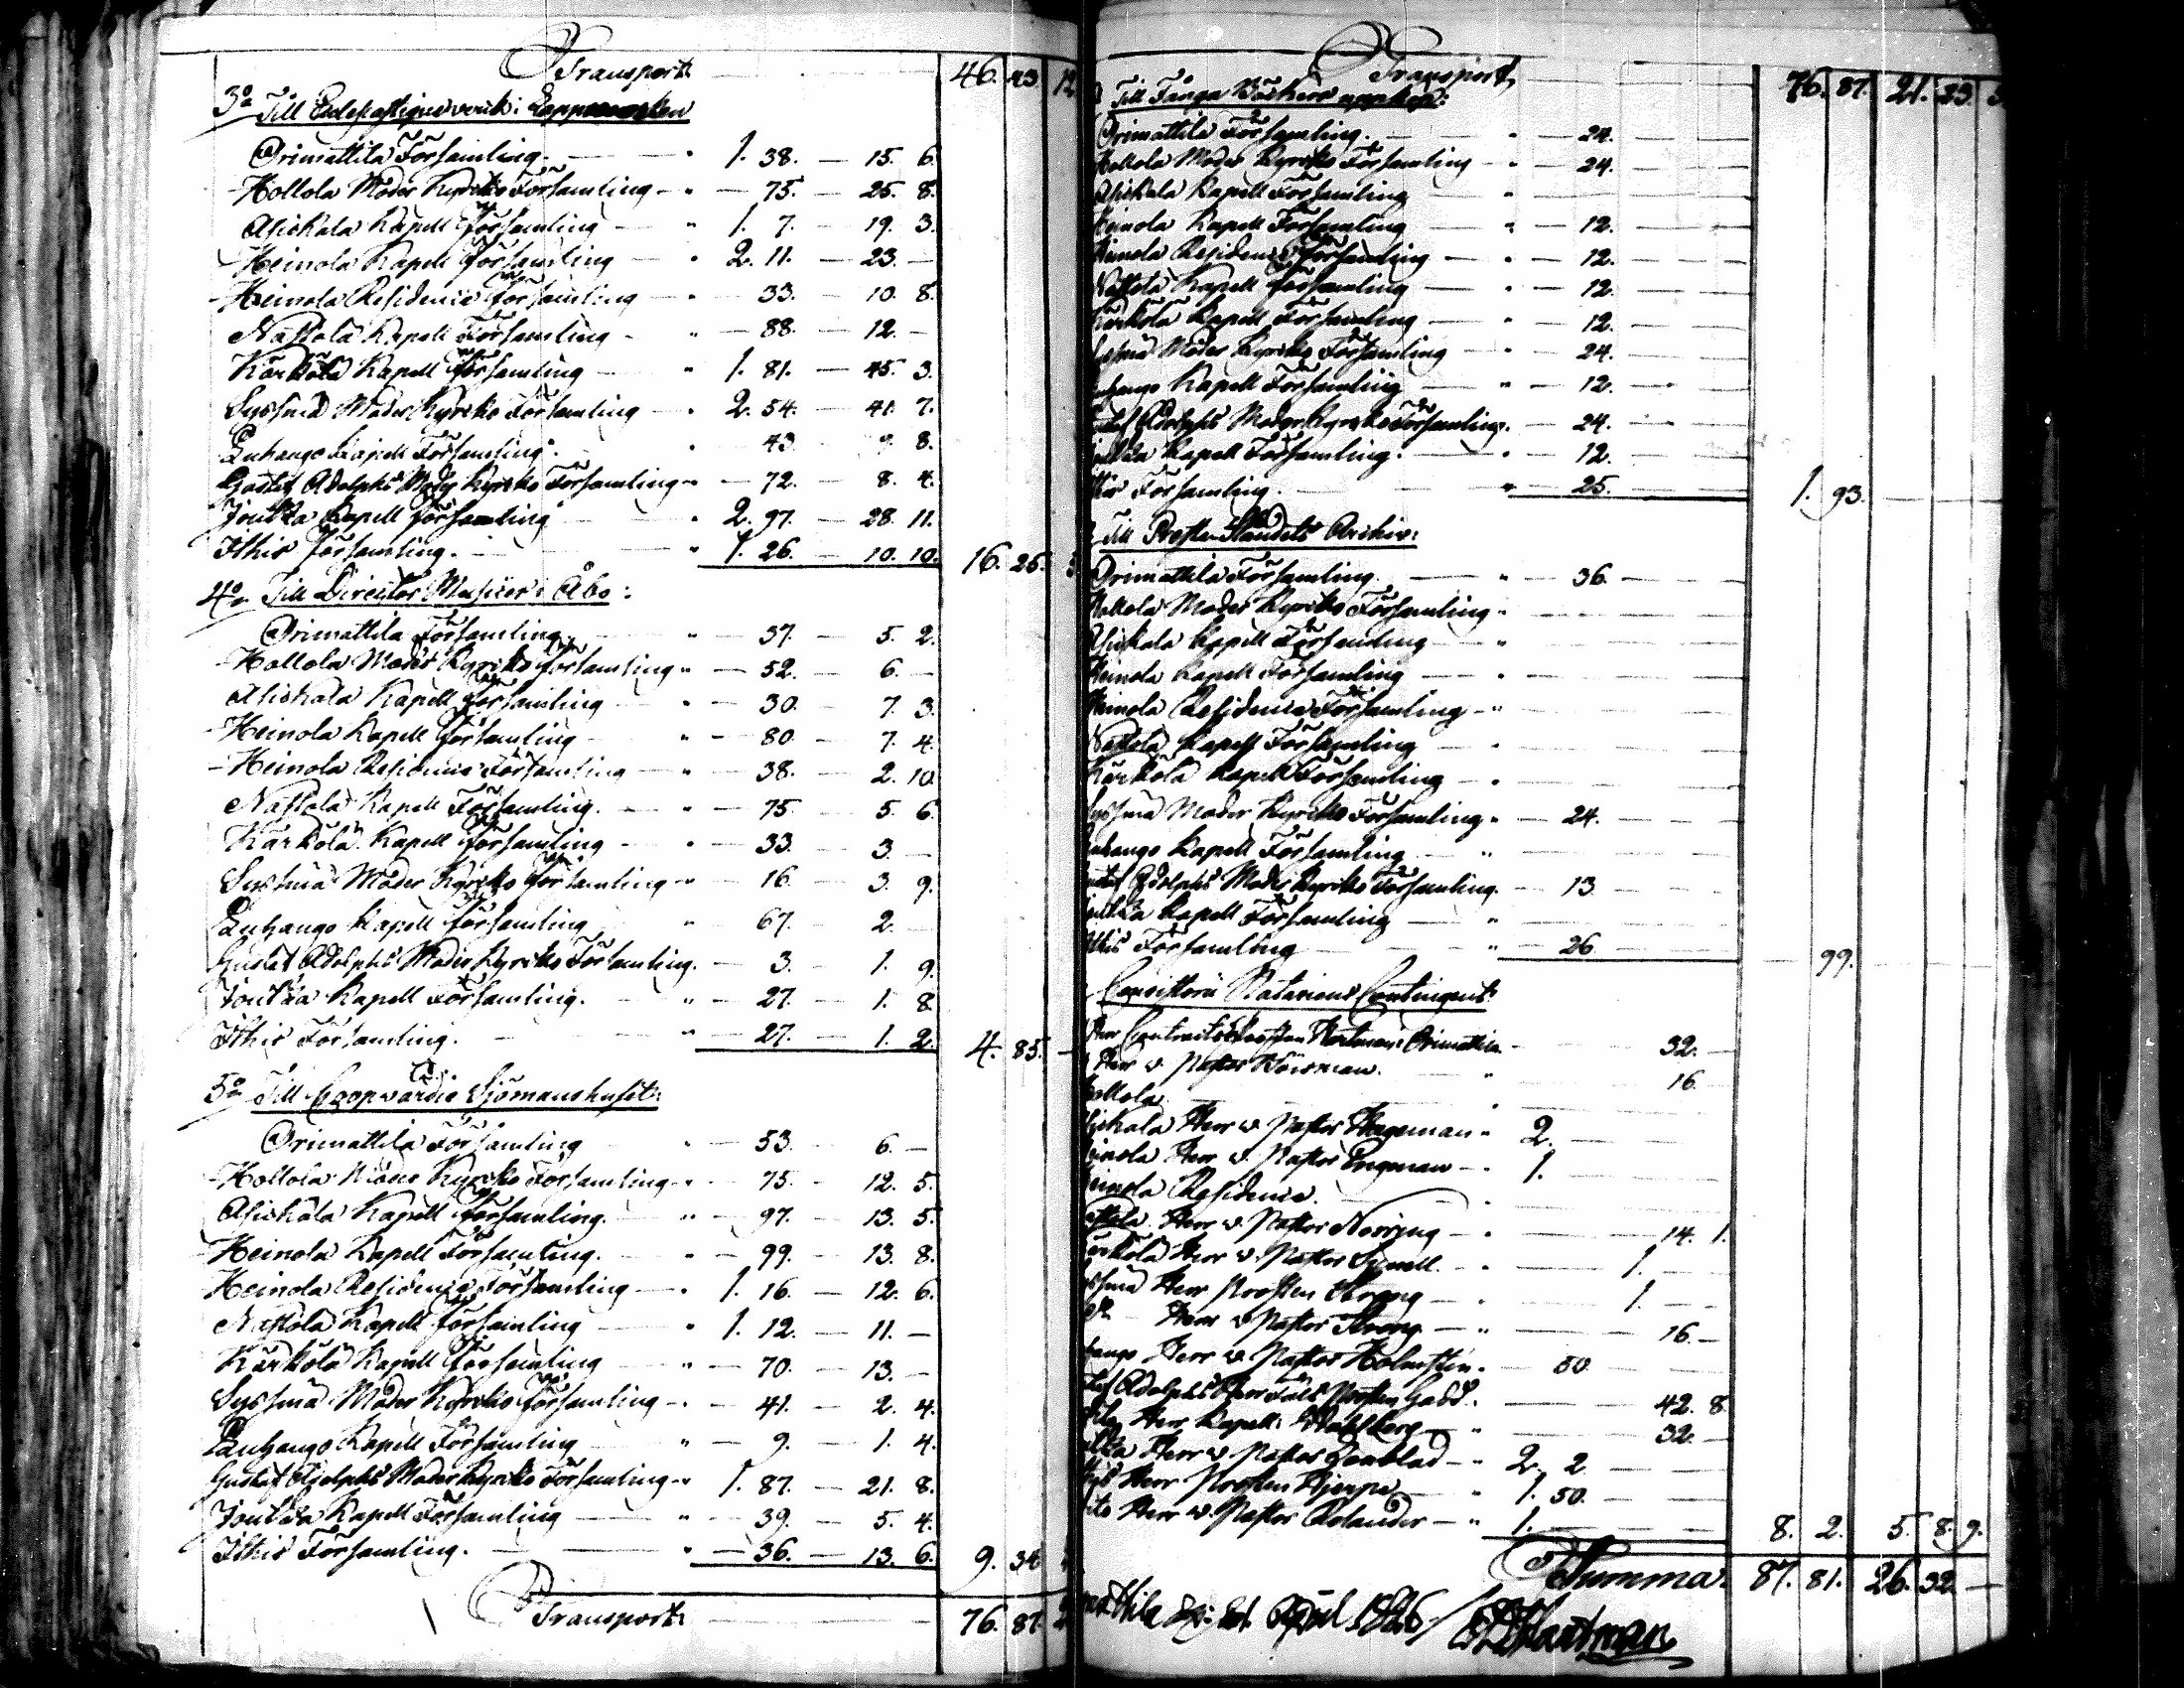 Transport 46. 43. 12
3o Till Ecclesiastique verk i Lappmarken
Orimattila Församling. " 1. 38. — 15. 6.
Hollola Moder Kyrko Församling " — 75. — 25. 8.
Asickala Kapell Församling — " 1. 7. — 19. 3.
Heinola Kapell Församling — " 2. 11. — 23. —
Heinola Residence Församling — " — 33. — 10. 8.
Nastola Kapell Församling — " — 88. — 12. —
Kärkölä Kapell Församling — " 1. 81. — 45. 3.
Sysmä Moder Kyrko Församling — " 2. 54. — 41. 7.
Luhango Kapell Församling. " 43 9. 8.
Gustaf Adolphs Moder Kyrko Församling " — 72. — 8. 4.
Joutsa Kapell Församling " 2. 97. — 28. 11.
Ithis Församling. — " 1. 26. — 10. 10. 16. 26.
4o Till Director Musices i Åbo:
Orimattila Församling. " — 37. — 5. 2.
Hollola Moder Kyrko Församling " — 52. — 6. —
Asickala Kapell Församling " — 30. — 7. 3.
Heinola Kapell Församling " — 80. — 7. 4.
Heinola Residence Församling — " — 38. — 2. 10.
Nastola Kapell Församling. — " — 75. 5. 6.
Kärkölä Kapell Församling — " — 33. 3. —
Sysmä Moder Kyrko Församling " — 16. — 3. 9.
Luhango Kapell Församling " — 67. — 2. —
Gustaf Adolphs Moder Kyrko Församling. — 3. — 1. 9.
Joutsa Kapell Församling. " — 27. — 1. 8.
Ithis Församling. — " — 27. — 1. 2. 4. 85. —
5o Till Coopvardie Sjömanshuset:
Orimattila Församling " — 53. 6. —
Hollola Moder Kyrko Församling " — 75. — 12. 5.
Asickala Kapell Församling. " — 97. — 13. 5.
Heinola Kapell Församling. " — 99. — 13. 8.
Heinola Residence Församling — " 1. 16. — 12. 6.
Nastola Kapell Församling — " 1. 12. — 11. —
Kärkölä Kapell Församling " — 70. — 13. —
Sysmä Moder Kyrko Församling " — 41. — 2. 4.
Luhango Kapell Församling " — 9. — 1. 4.
Gustaf Adolphs Moder Kyrko Församling " 1. 87. — 21. 8.
Joutsa Kapell Församling — " — 39. — 5. 4.
Ithis Församling. — " — 36. — 13. 6. 9. 34
Transport 76. 87.
Transport 76. 87. 21. 23.
Till Fånga Wäckers
Orimattila Församling. " — 24.
Hollola Moder Kyrko Församling " — 24.
Asickala Kapell Församling "
Heinola Kapell Församling " — 12.
Heinola Residence Församling — " — 12.
Nastola Kapell Församling " — 12.
Kärkölä Kapell Församling " — 12.
Sysmä Moder Kyrko Församling " — 24.
Luhango Kapell Församling " — 12.
Gustaf Adolphs Moder Kyrko Församling. — 24.
Joutsa Kapell Församling. " — 12.
Ithis Församling. " — 25. 1. 93.
Till Preste Ståndets Archiv:
Orimattila Församling. " — 36. —
Hollola Moder Kyrko Församling "
Asickala Kapell Församling "
Heinola Kapell Församling "
Heinola Residence Församling "
Nastola Kapell Församling "
Kärkölä Kapell Församling "
Sysmä Moder Kyrko Församling " — 24.
Luhango Kapell Församling "
Gustaf Adolphs Moder Kyrko Församling. — 13.
Joutsa Kapell Församling — "
Ithis Församling " — 26. 99.
Consistorii Notariens Contingent:
Herr Contracts Prosten Hartman i Orimattila 32. —
Herr v. Pastor " 16.
Hollola
Asickala Herr v. Pastor Hageman " 2.
Heinola Herr v. Pastor " 1.
Heinola Residence.
Nastola Herr v. Pastor Norring " 14. 1.
Kärkölä Herr v. Pastor " 1.
Sysmä Herr Prosten 1. —
Herr v. Pastor " 16. —
Luhango Herr v. Pastor Holmsten. — 50.
Gustaf Adolphs Herr Fält Prosten Gadd. 42. 8.
Herr Kapell: Wahlberg 32. —
Joutsa Herr v. Pastor " 2. 2.
Ithis Herr Prosten Hjerpe " 1. 50.
Dito Herr v. Pastor Rolander — " 1. 8. 2. 5. 8. 9.
Summa. 87. 81. 26. 32. —
Orimattila April 1826
Hartman